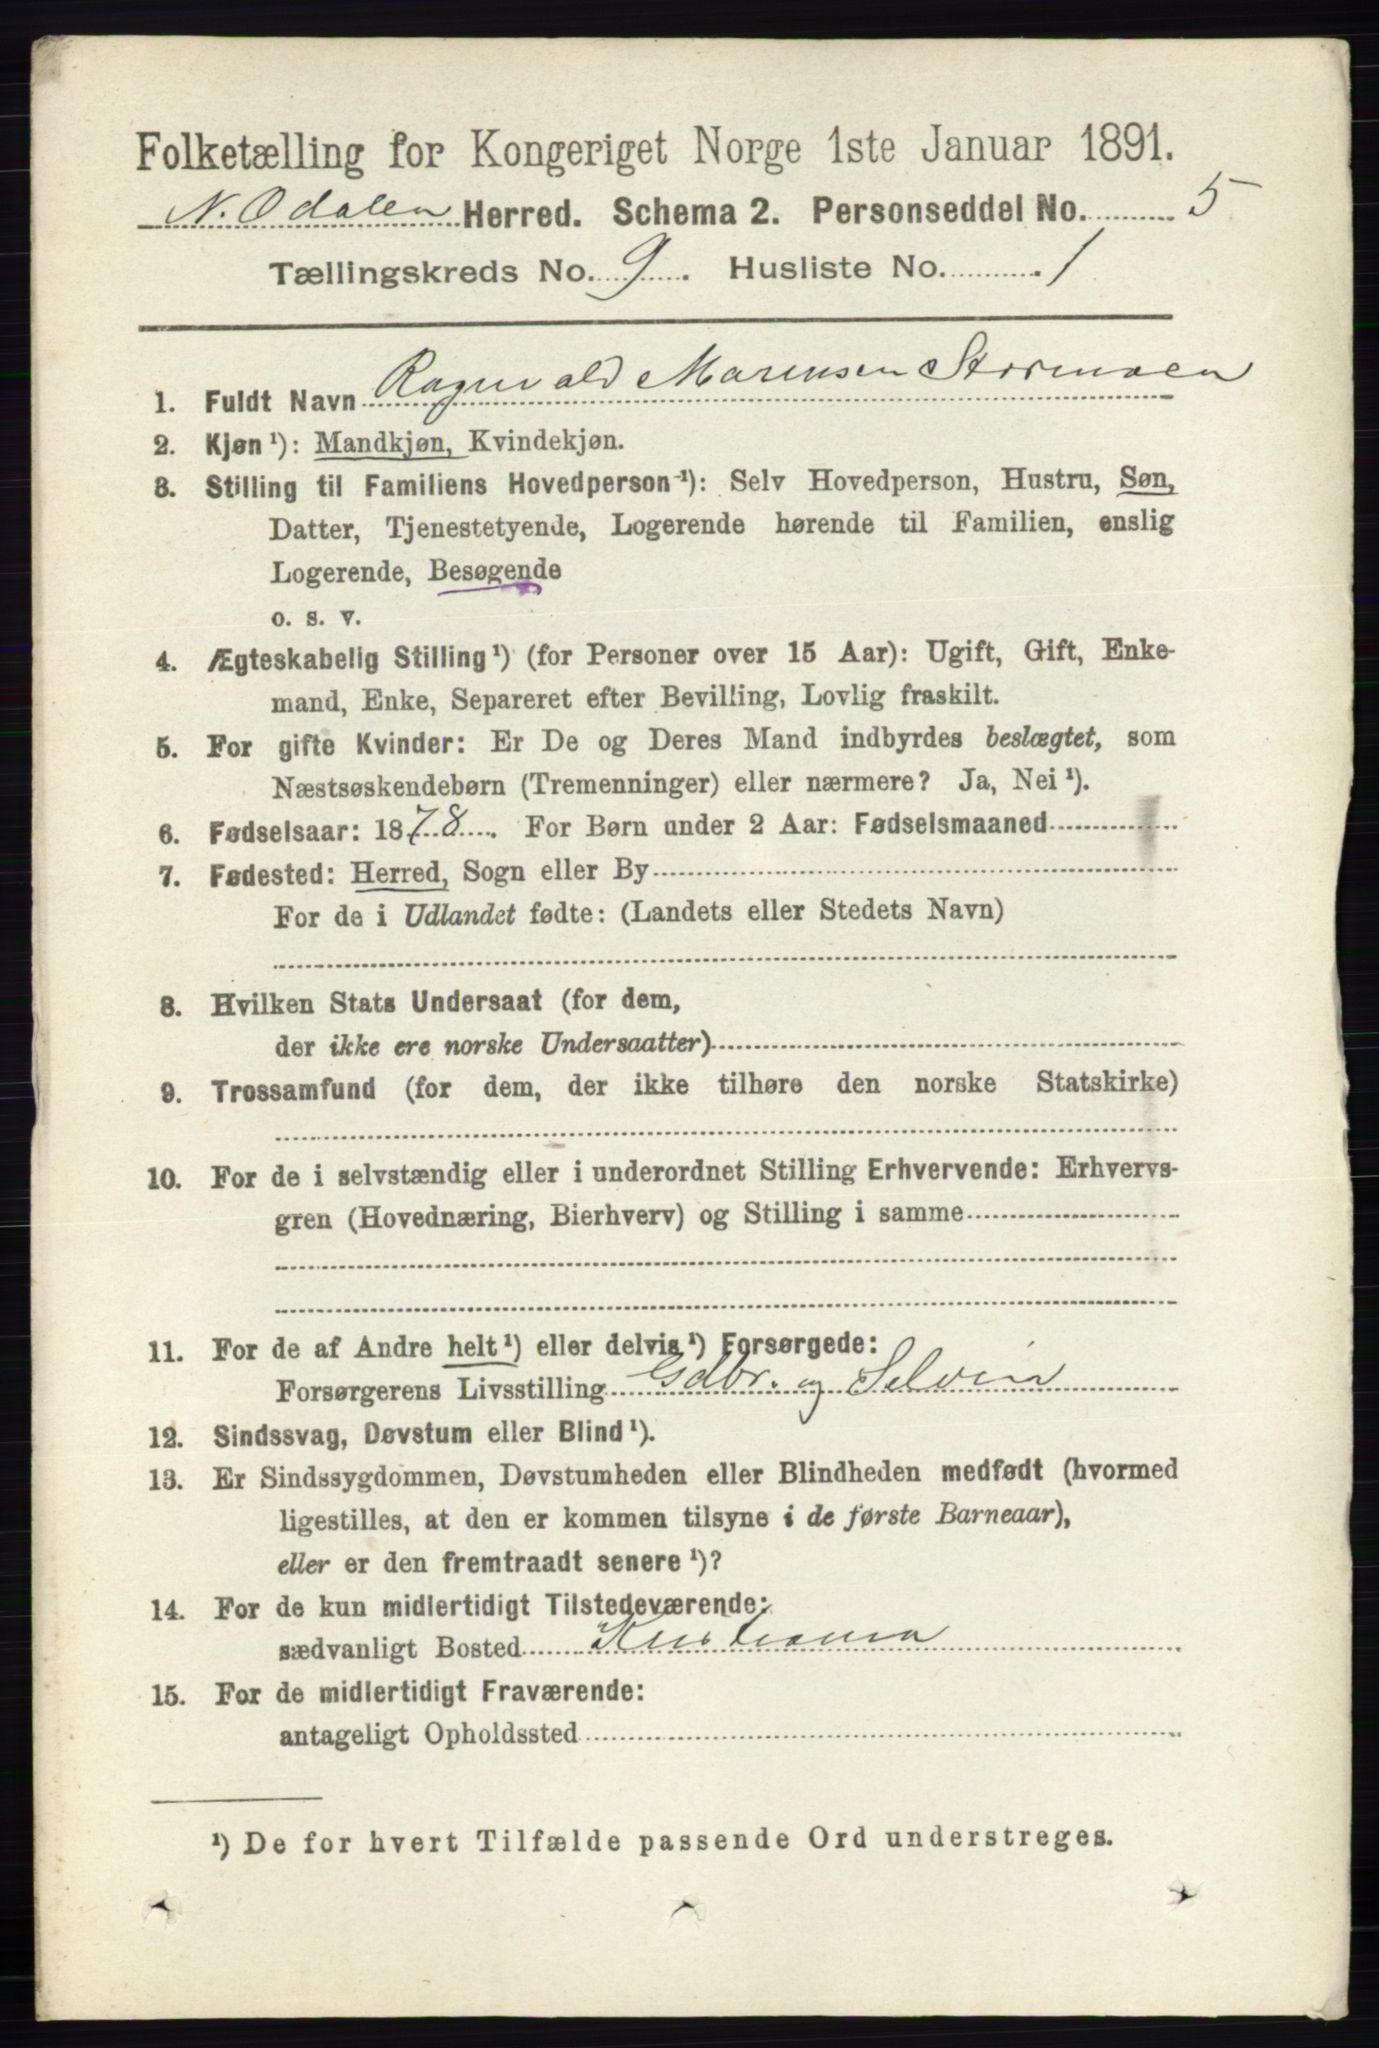 Folketælling for Kongeriget Norge 1ste Januar 1891.
N. Odalen Herred. Schema 2. Personseddel No. 5
Tællingskreds No. 9. Husliste No. 1
1. Fuldt Navn Ragnvald Marensen Stormoen
2. Kjøn ¹): Mandkjøn, Kvindekjøn.
3. Stilling til Familiens Hovedperson ¹): Selv Hovedperson, Hustru, Søn,
Datter, Tjenestetyende, Logerende hørende til Familien, enslig
Logerende, Besøgende
o. s. v.
4. Ægteskabelig Stilling ¹) (for Personer over 15 Aar): Ugift, Gift, Enke-
mand, Enke, Separeret efter Bevilling, Lovlig fraskilt.
5. For gifte Kvinder: Er De og Deres Mand indbyrdes beslægtet, som
Næstsøskendebørn (Tremenninger) eller nærmere? Ja, Nei ¹).
6. Fødselsaar: 1878. For Børn under 2 Aar: Fødselsmaaned
7. Fødested: Herred, Sogn eller By
For de i Udlandet fødte: (Landets eller Stedets Navn)
8. Hvilken Stats Undersaat (for dem,
der ikke ere norske Undersaatter)
9. Trossamfund (for dem, der ikke tilhøre den norske Statskirke)
10. For de i selvstændig eller i underordnet Stilling Erhvervende: Erhvervs-
gren (Hovednæring, Bierhverv) og Stilling i samme
11. For de af Andre helt ¹) eller delvis ¹) Forsørgede:
Forsørgerens Livsstilling Gdbr. og Seleier
12. Sindssvag, Døvstum eller Blind ¹).
13. Er Sindssygdommen, Døvstumheden eller Blindheden medfødt (hvormed
ligestilles, at den er kommen tilsyne i de første Barneaar),
eller er den fremtraadt senere ¹)?
14. For de kun midlertidigt Tilstedeværende:
sædvanligt Bosted Kristiania
15. For de midlertidigt Fraværende:
antageligt Opholdssted
¹) De for hvert Tilfælde passende Ord understreges.